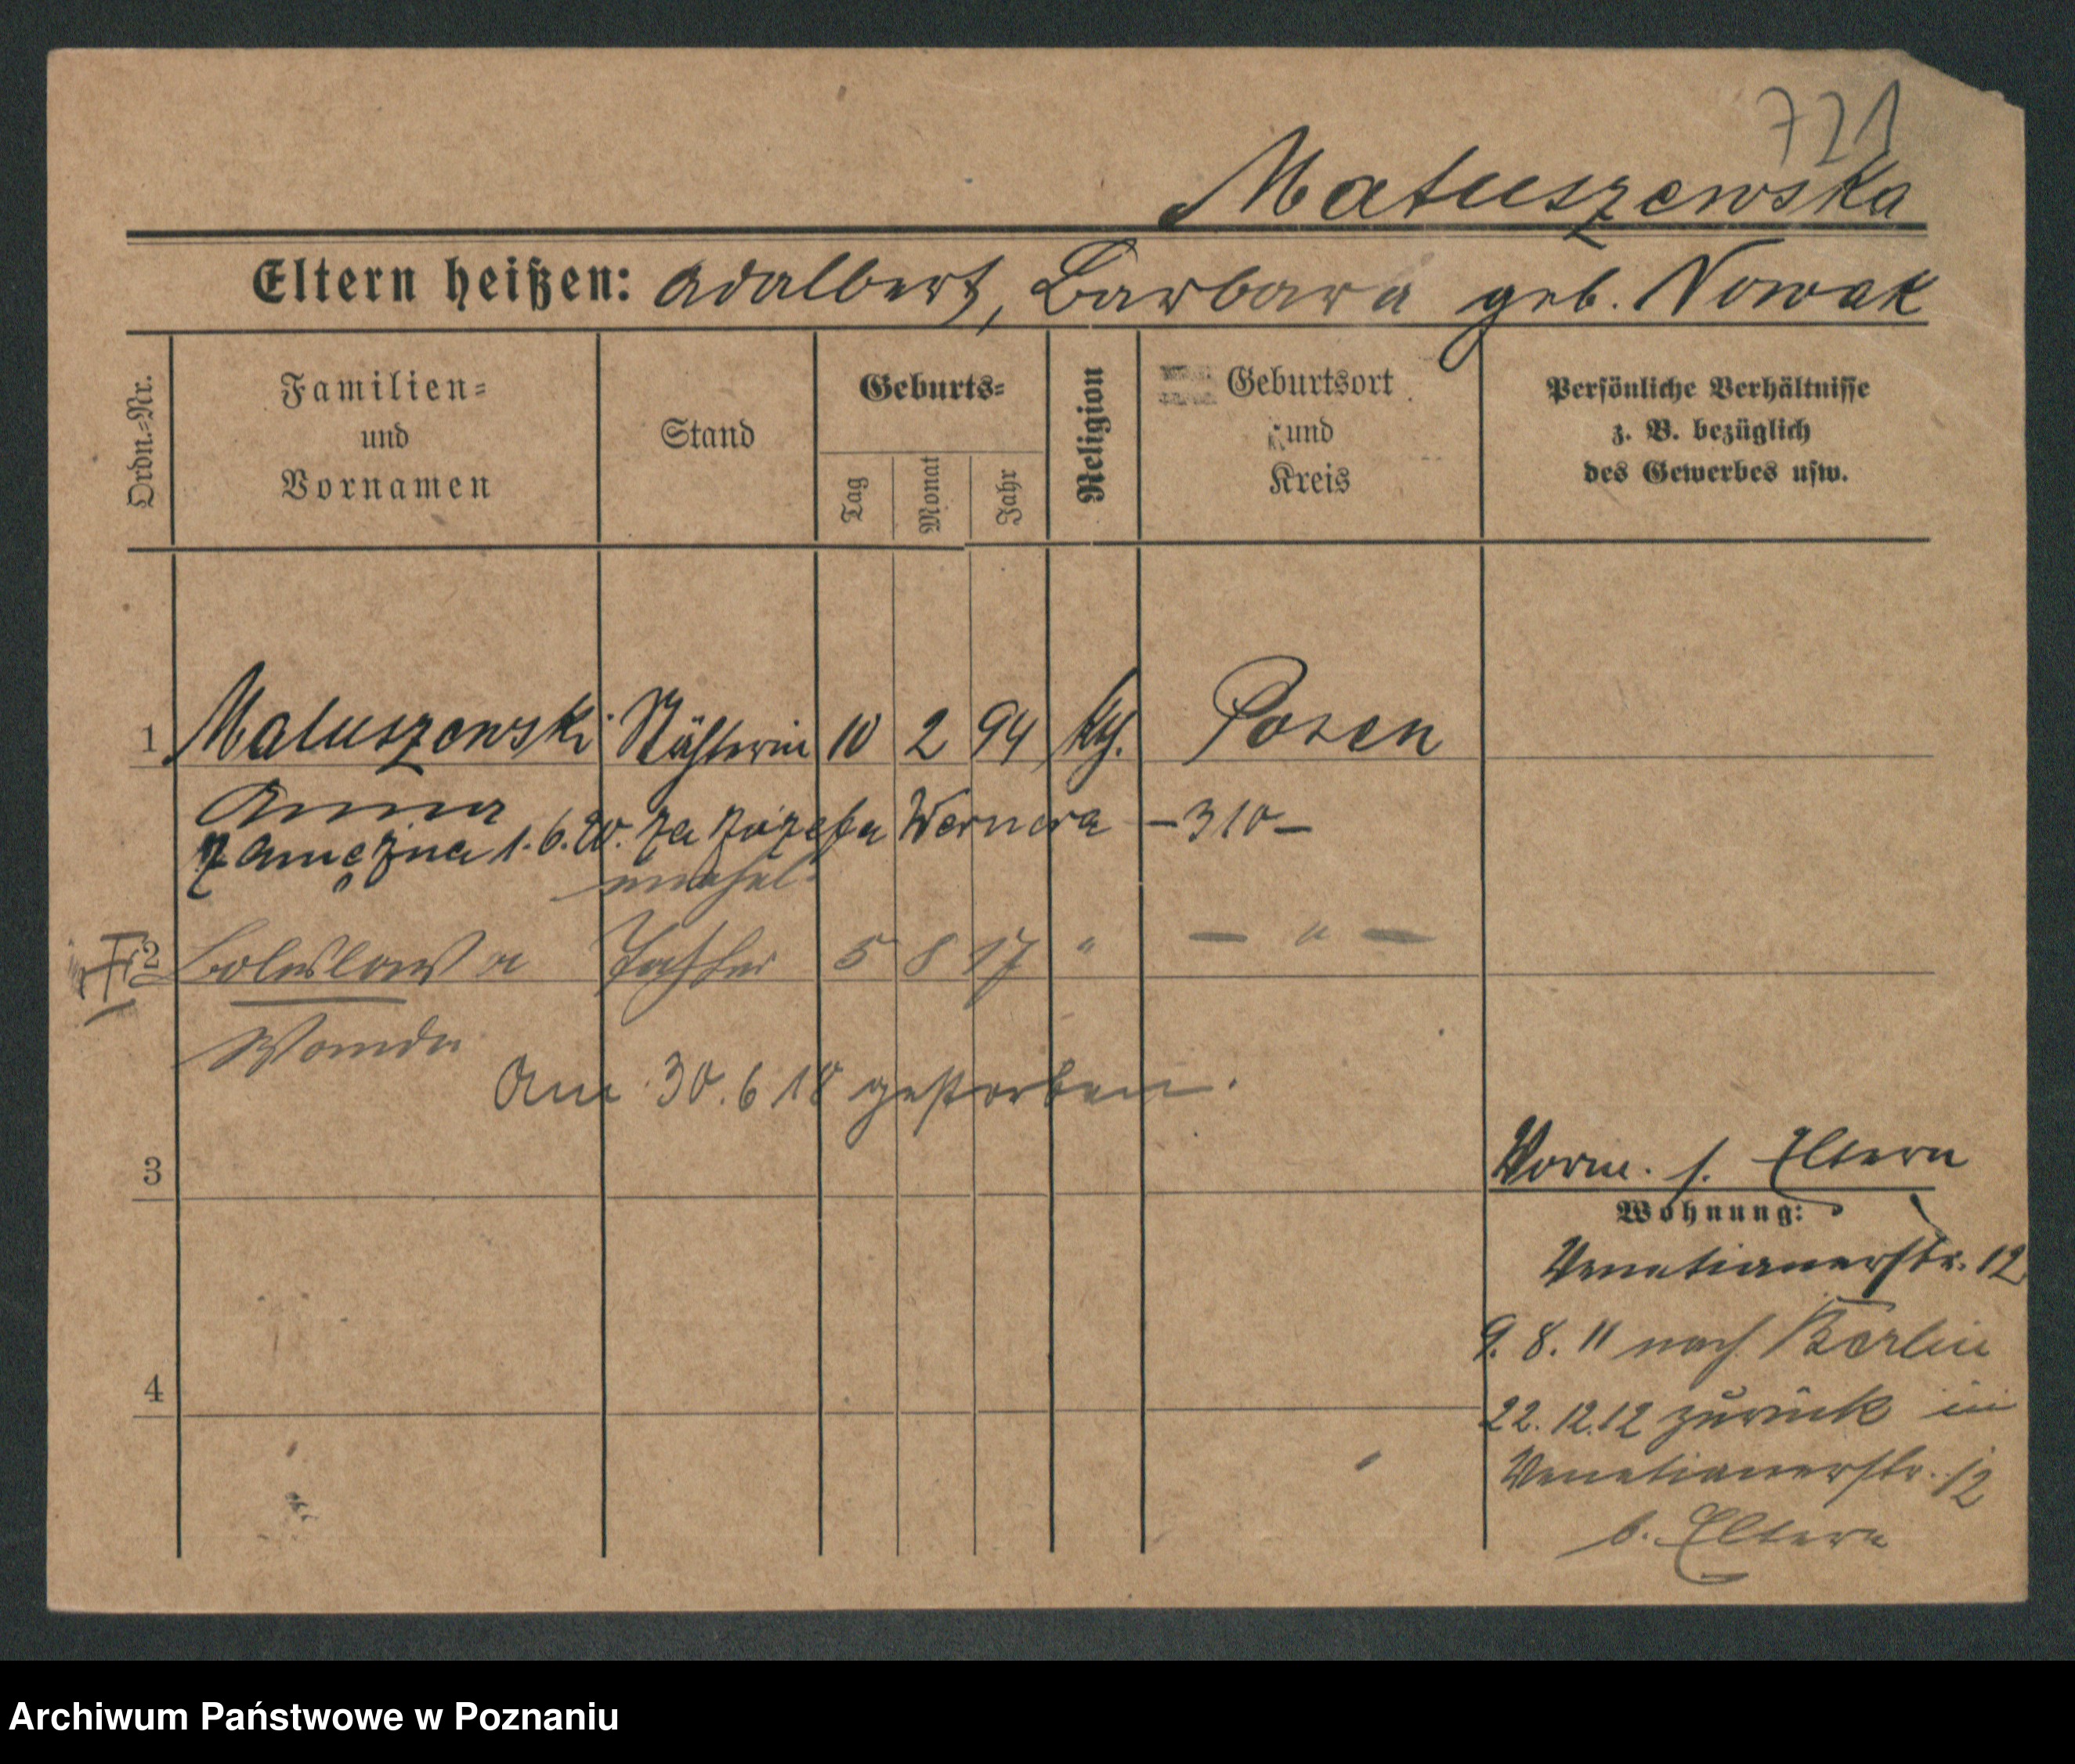 721
Matuszewska
Eltern heißen: Adalbert, Barbara geb. Nowak
Ordn.=Nr.
Familien=
und
Vornamen
Stand
Geburts=
Tag
Monat
Jahr
Religion
Geburtsort
und
Kreis
Persönliche Verhältnisse
z. B. bezüglich
des Gewerbes usw.
1 Matuszewski Nähterin 10 2 94 kth. Posen
Anna
zamężna 1.6.20. za Józefa Wernera —310—
unehel.
2 Boleslawa Tochter 5 8 17 " — " —
Wanda
Am 30.6 18 gestorben.
3
Vorm. s. Eltern
Wohnung:
Venetianerstr. 12
9. 8. 11 nach Berlin
22. 12.12 zurück in
Venetianerstr. 12
b. Eltern
4
Archiwum Państwowe w Poznaniu